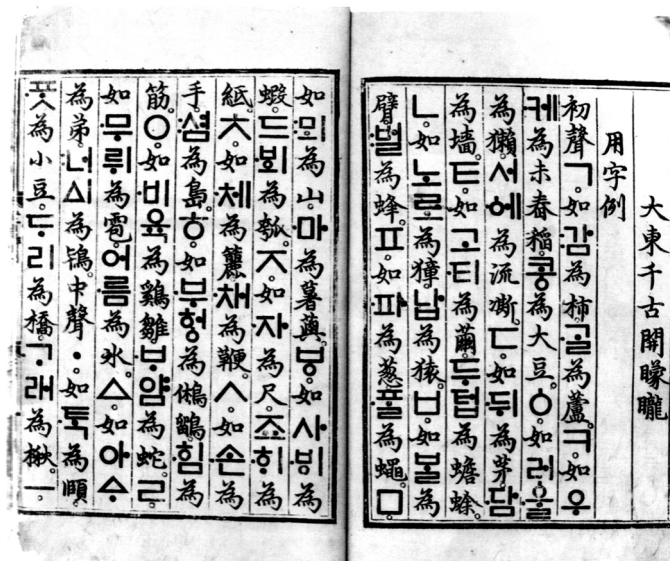 大東千古開矇矓
用字例
初聲ㄱ。如감為柿。ᄀᆞᆯ為蘆。ㅋ。如우
케為未舂稻。콩為大豆。ㆁ。如러울
為獺。서ᅌᅦ為流凘。ㄷ。如뒤為茅。담
為墻。ㅌ。如고티為繭。두텁為蟾蜍。
ㄴ。如노로為獐。납為猿。ㅂ。如ᄇᆞᆯ為
臂。벌為蜂。ㅍ。如파為葱。ᄑᆞᆯ為蠅。ㅁ。
如뫼為山。마為薯藇。ㅸ。如사ᄫᅵ為
蝦。드ᄫᅴ為瓠。ㅈ。如자為尺。죠ᄒᆡ為
紙。ㅊ。如체為籭。채為鞭。ㅅ。如손為
手。셤為島。ㅎ。如부헝為鵂鶹。힘為
筋。ㅇ。如비육為鷄雛。ᄇᆞ얌為蛇。ㄹ。
如무뤼為雹。어름為氷。ㅿ。如아ᅀᆞ
為弟。너ᅀᅵ為鴇。中聲ㆍ。如ᄐᆞᆨ為頤。
ᄑᆞᆺ為小豆。ᄃᆞ리為橋。ᄀᆞ래為楸。ㅡ。